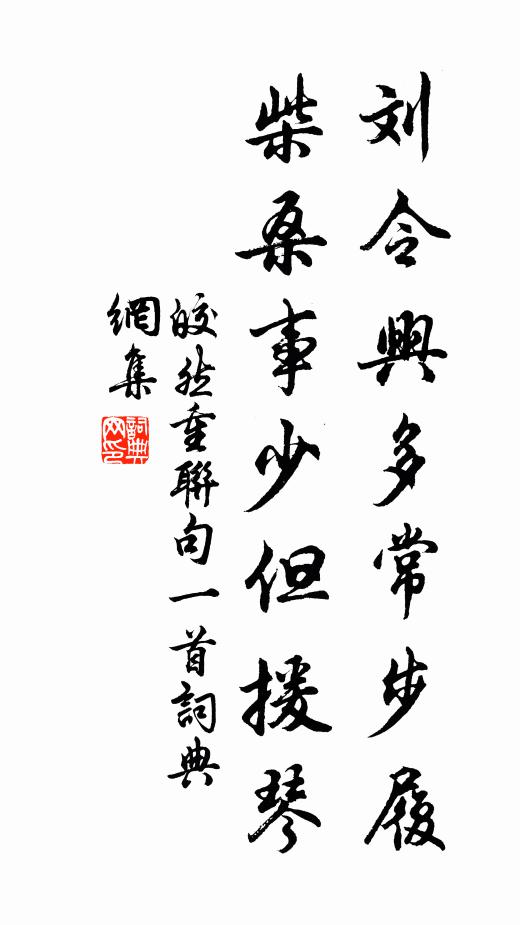 刘令興多常步履
柴桑事少但援琴
皎然重聯句一首詞典
網集
詞典
网印